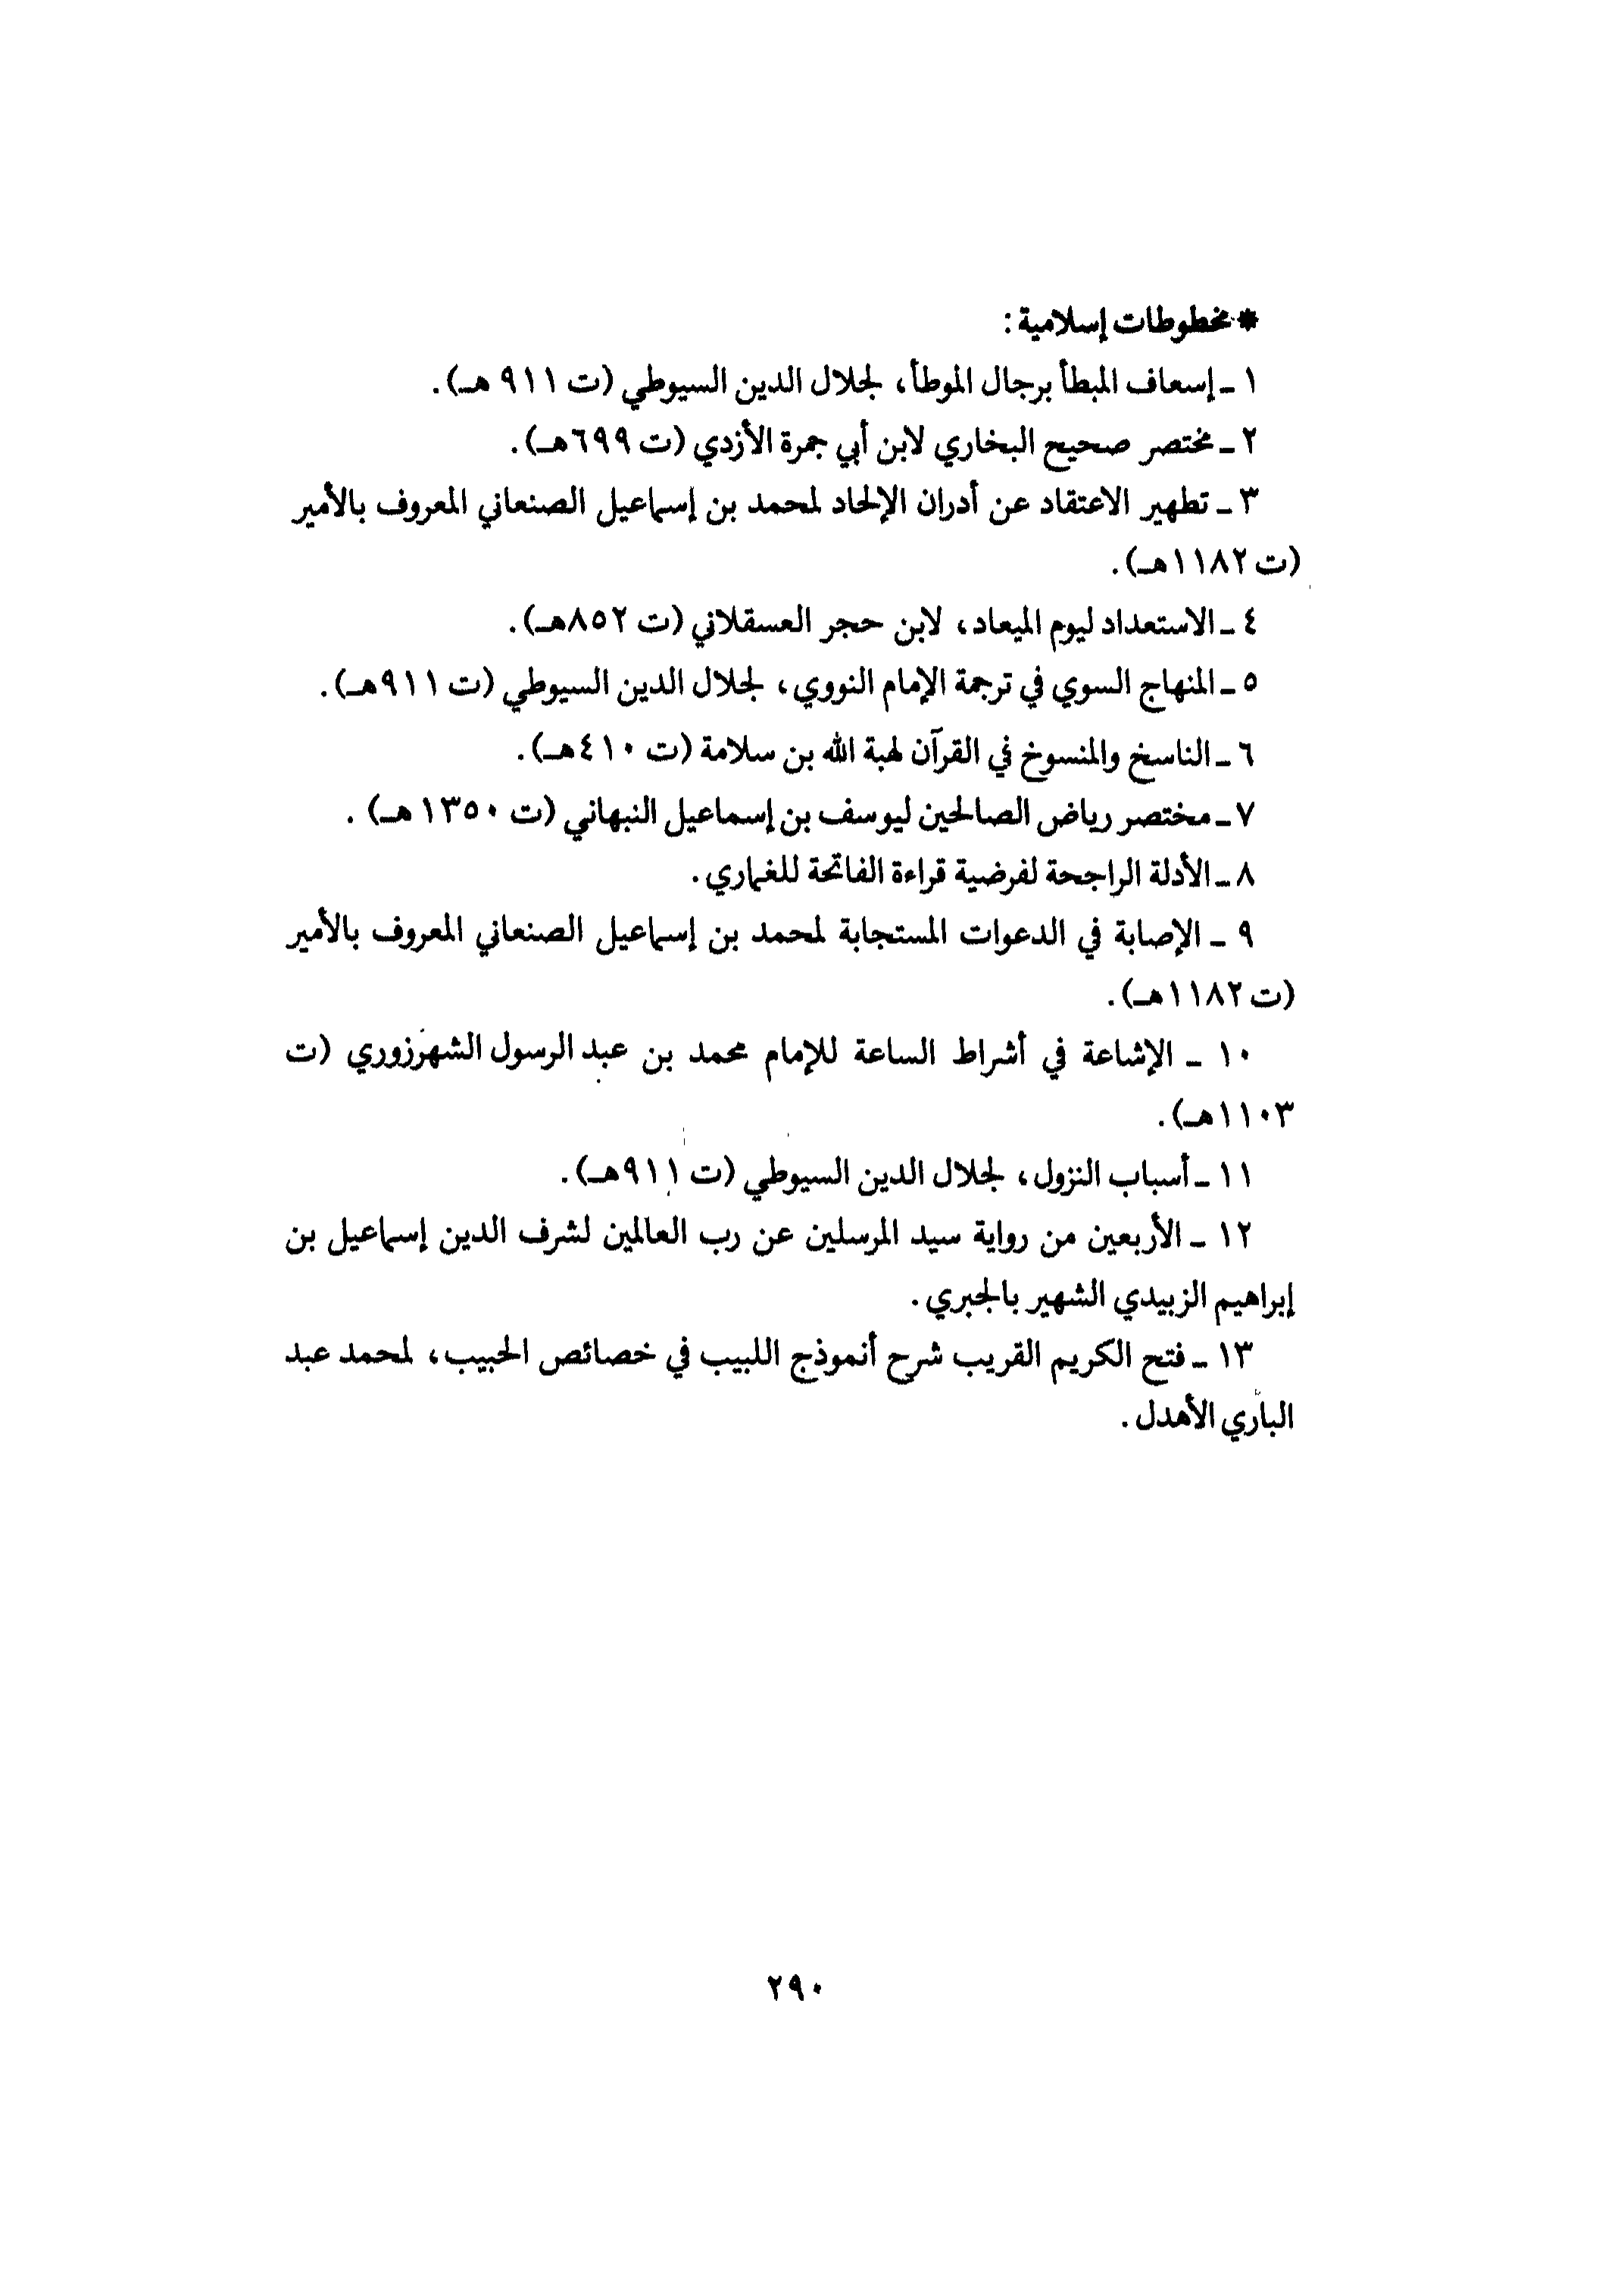 * مخطوطات إسلامية :
١ ـ إسعاف المبطأ برجال الموطأ، لجلال الدين السيوطي (ت ٩١١ هـ).
٢ ـ مختصر صحيح البخاري لابن أبي جمرة الأزدي (ت ٦٩٩هـ).
٣ ـ تطهير الاعتقاد عن أدران الإلحاد لمحمد بن إسماعيل الصنعاني المعروف بالأمير
(ت ١١٨٢هـ).
٤ ـ الاستعداد ليوم الميعاد، لابن حجر العسقلاني (ت ٨٥٢هـ).
٥ ـ المنهاج السوي في ترجمة الإمام النووي، لجلال الدين السيوطي (ت ٩١١هـ).
٦ ـ الناسخ والمنسوخ في القرآن لهبة الله بن سلامة (ت ٤١٠هـ).
٧ ـ مختصر رياض الصالحين ليوسف بن إسماعيل النبهاني (ت ١٣٥٠هـ) .
٨ ـ الأدلة الراجحة لفرضية قراءة الفاتحة للغماري.
٩ ـ الإصابة في الدعوات المستجابة لمحمد بن إسماعيل الصنعاني المعروف بالأمير
(ت ١١٨٢هـ).
١٠ ـ الإشاعة في أشراط الساعة للإمام محمد بن عبد الرسول الشهرزوري (ت
١١٠٣هـ).
١١ ـ أسباب النزول، لجلال الدين السيوطي (ت ٩١١هـ).
١٢ ـ الأربعين من رواية سيد المرسلين عن رب العالمين لشرف الدين إسماعيل بن
إبراهيم الزبيدي الشهير بالجبري.
١٣ ـ فتح الكريم القريب شرح أنموذج اللبيب في خصائص الحبيب، لمحمد عبد
الباري الأهدل.
٢٩٠